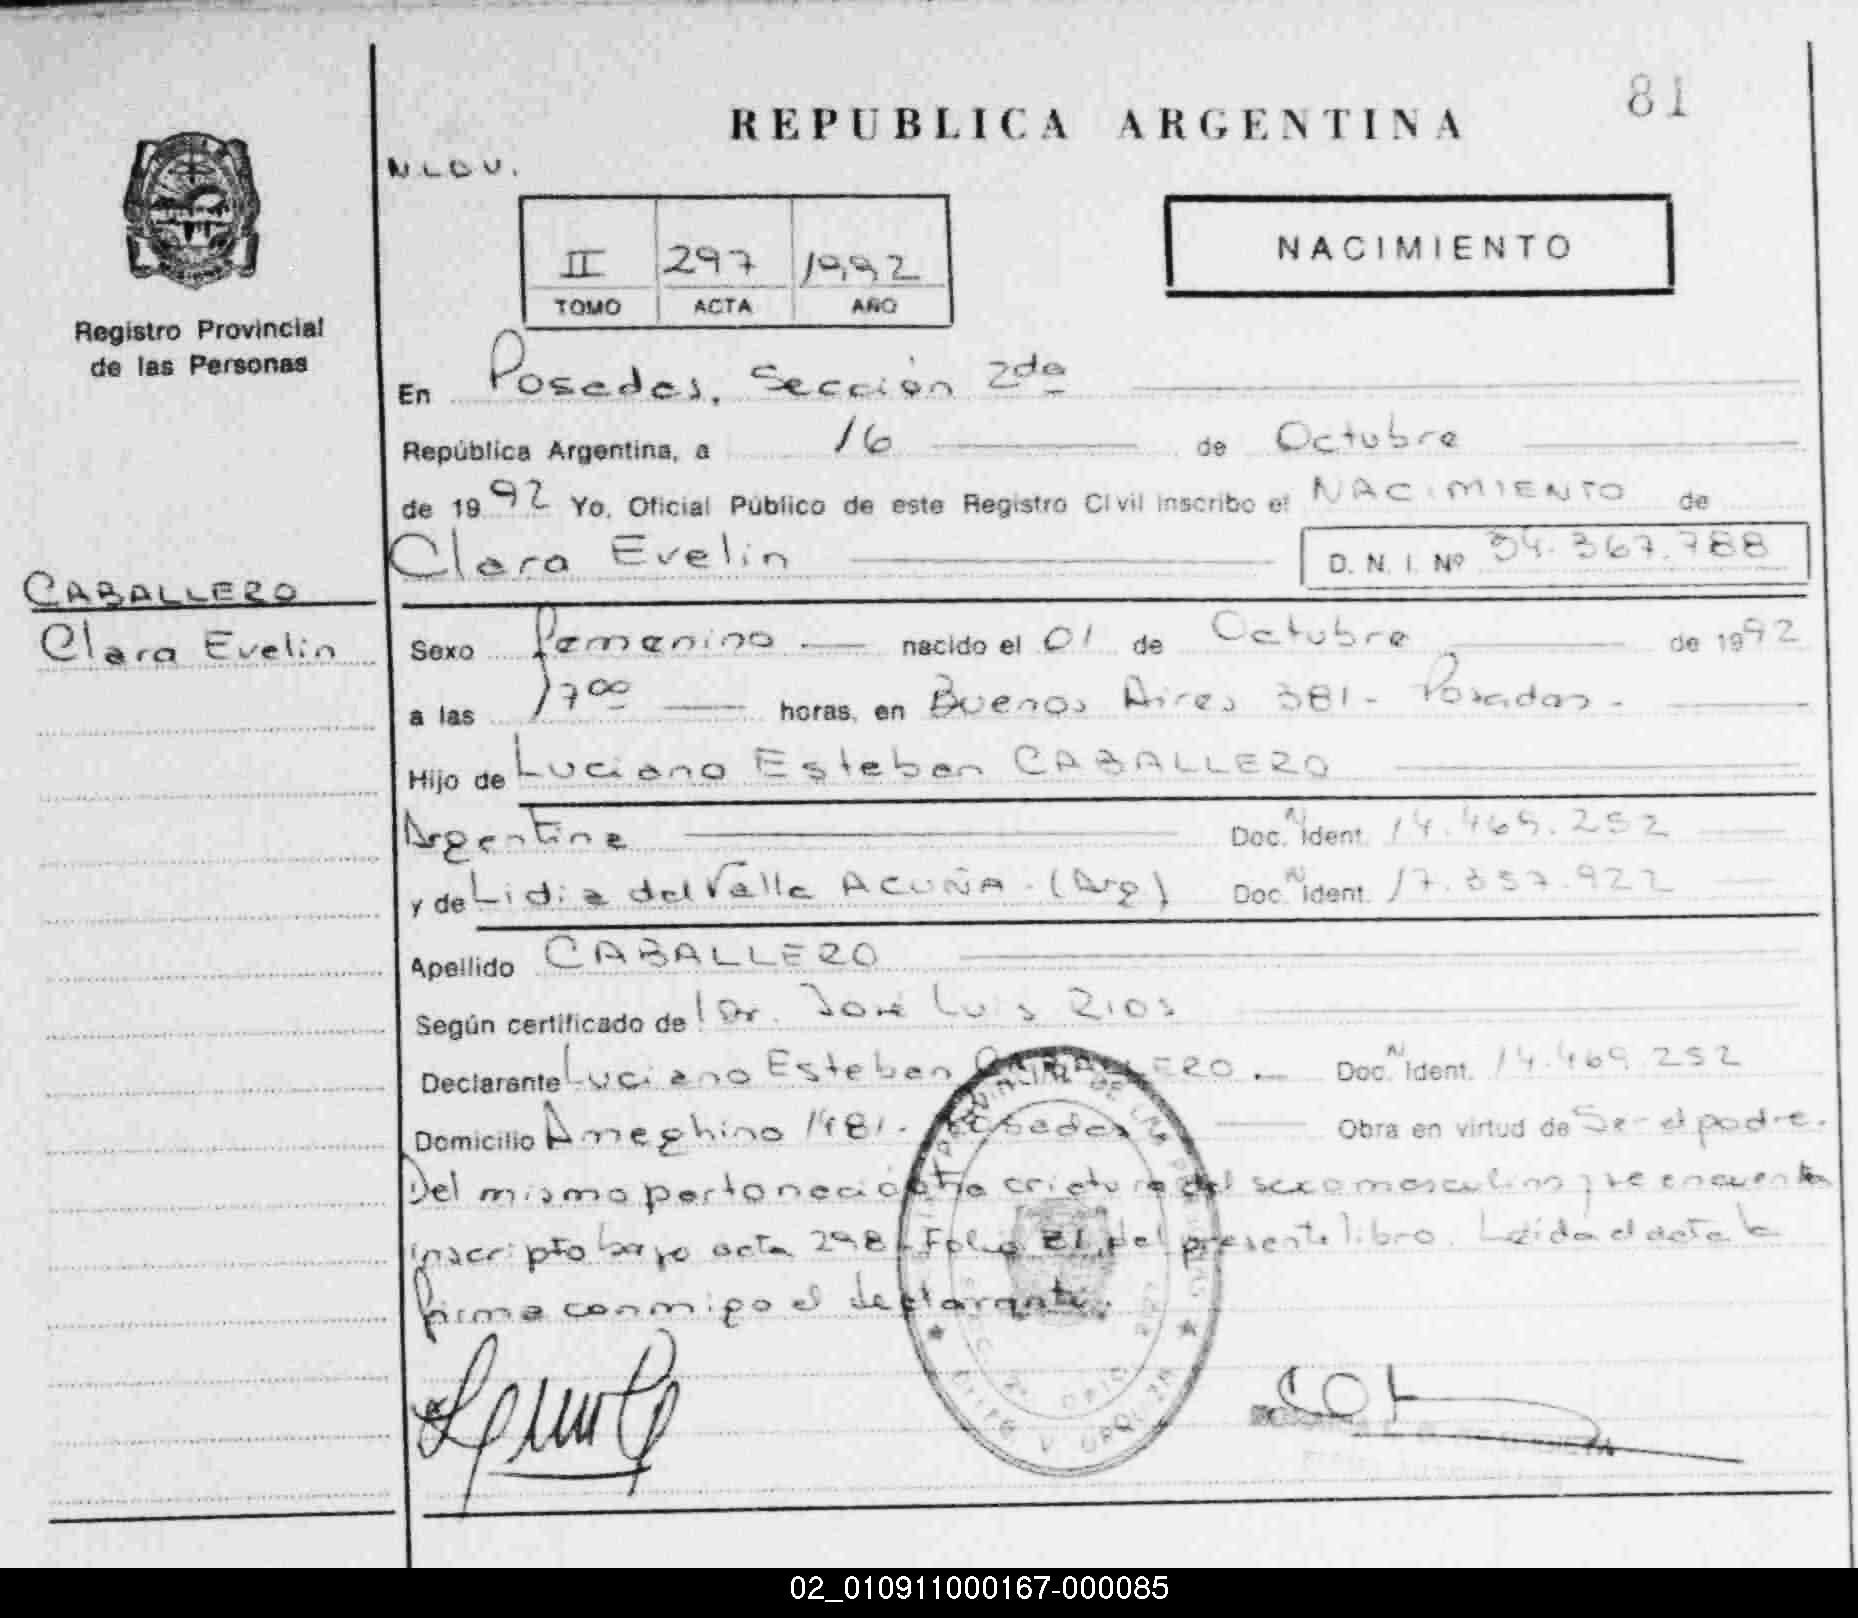 81
REPUBLICA ARGENTINA
N.L.D.V.
II 297 1992
TOMO ACTA AÑO
NACIMIENTO
Registro Provincial
de las Personas
En Posadas, Sección 2da
República Argentina, a 16 de Octubre
de 1992 Yo, Oficial Público de este Registro Civil inscribo el NACIMIENTO de
Clara Evelin D. N. I. Nº 34.367.788
CABALLERO
Clara Evelin
Sexo femenino nacido el 01 de Octubre de 1992
a las 17 00 horas, en Buenos Aires 381 - Posadas -
Hijo de Luciano Esteban CABALLERO
Argentina Doc. N Ident. 14.469.252
y de Lidia del Valle ACUÑA - (Arg) Doc. N Ident. 17.357.922
Apellido CABALLERO
Según certificado de Dr. José Luis Rios
Declarante Luciano Esteban CABALLERO.- Doc. N Ident. 14.469.252
Domicilio Ameghino 1481 - Posadas Obra en virtud de Ser el padre.
Del mismo parto nació otra criatura del sexo masculino que encuentra
inscripto bajo acta 298 - Folio 81, del presente libro. Leída el acta la
firma conmigo el declarante.
02_010911000167-000085